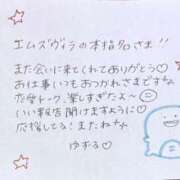 エムズヴィラの本指名さま!!
また会いに来てくれてありがとう♡
お仕事いつもおつかれさまです
恋愛トーク、楽しすぎたよ〜
いい報告聞けますように♡
応援してる!またねっ
ゆする♡